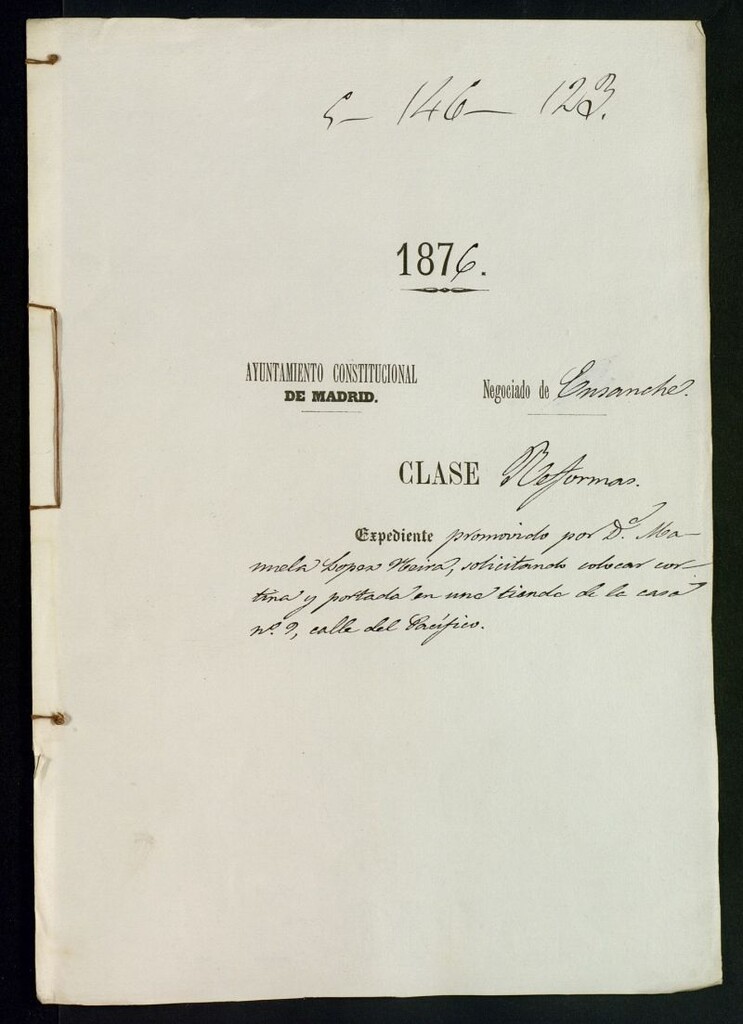 5- 146- 123.
1876.
AYUNTAMIENTO CONSTITUCIONAL
DE MADRID.
Negociado de Ensanche.
CLASE Reformas.
Expediente promovido por D.ª Ma-
nuela Lopez Neira, solicitando colocar cor-
tina y portada en una tienda de la casa
nº. 9, calle del Pacífico.